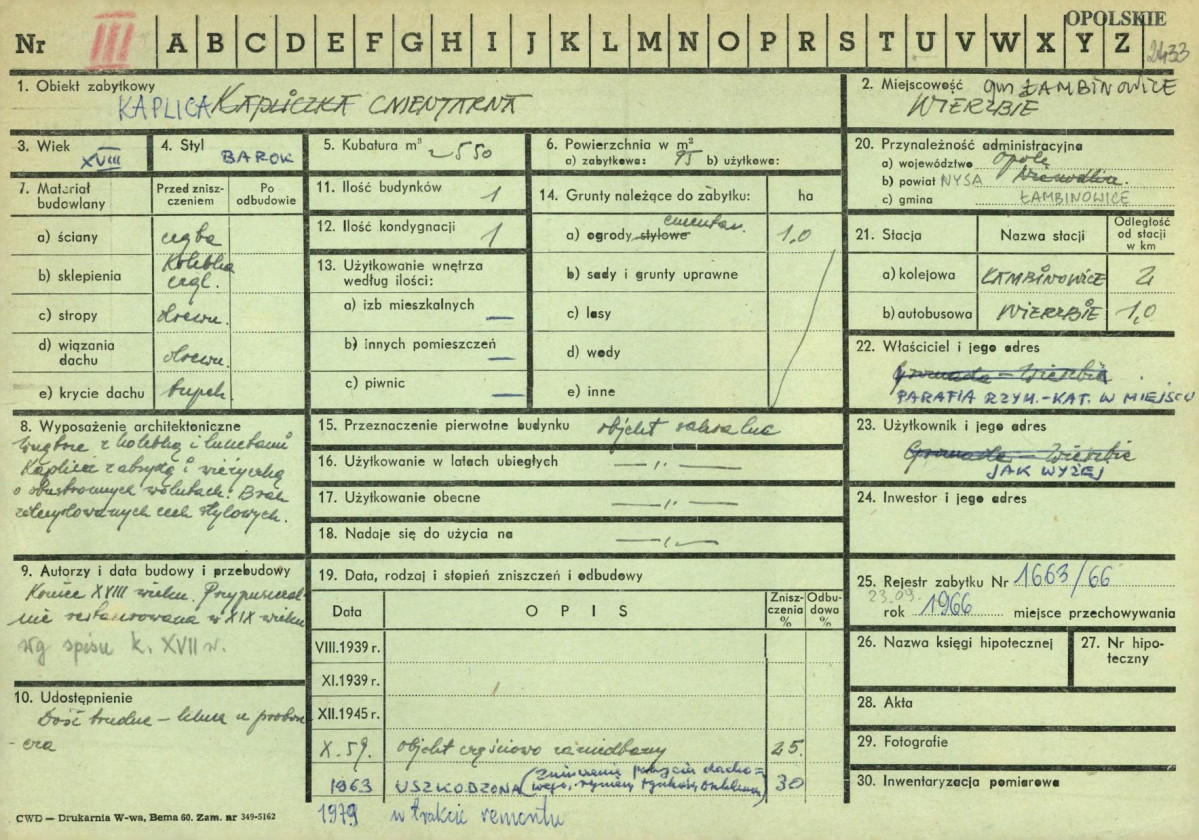 OPOLSKIE
Nr III A B C D E F G H I J K L M N O P R S T U V W X Y Z
2433
1. Obiekt zabytkowy
KAPLICA KAPLICZKA CMENTARNA
2. Miejscowość gm ŁAMBINOWICE
WIERZBIE
3. Wiek XVIII
4. Styl BAROK
5. Kubatura m³ ~550
6. Powierzchnia w m²
a) zabytkowa: 95 b) użytkowa:
20. Przynależność administracyjna
a) województwo Opole
b) powiat NYSA Niemodlin.
c) gmina ŁAMBINOWICE
7. Materiał budowlany
Przed zniszczeniem
Po odbudowie
a) ściany cegła
b) sklepienia Kolebka cegl.
c) stropy drewn.
d) wiązania dachu drewn.
e) krycie dachu łupek
11. Ilość budynków 1
12. Ilość kondygnacji 1
13. Użytkowanie wnętrza
według ilości:
a) izb mieszkalnych —
b) innych pomieszczeń —
c) piwnic —
14. Grunty należące do zabytku: ha
a) ogrody stylowe cmentarn. 1,0
b) sady i grunty uprawne
c) lasy
d) wody
e) inne
21. Stacja
Nazwa stacji
Odległość od stacji w km
a) kolejowa ŁAMBINOWICE 2
b) autobusowa WIERZBIE 1,0
22. Właściciel i jego adres
Gromada – Wierzbie
PARAFIA RZYM.-KAT. W MIEJSCU
8. Wyposażenie architektoniczne
Wnętrze z kolebką i lunetami
Kaplica z absydą i wieżyczką
o obustronnych wolutach. Brak
cech stylowych.
15. Przeznaczenie pierwotne budynku obiekt sakralny
16. Użytkowanie w latach ubiegłych — „ —
17. Użytkowanie obecne — „ —
18. Nadaje się do użycia na — „ —
23. Użytkownik i jego adres
Gromada – Wierzbie
JAK WYŻEJ
24. Inwestor i jego adres
9. Autorzy i data budowy i przebudowy
Koniec XVIII wieku. Przypuszczal-
nie restaurowana w XIX wieku
wg spisu k. XVII w.
10. Udostępnienie
Dość trudne – klucz u probosz-
cza
19. Data, rodzaj i stopień zniszczeń i odbudowy
Data
OPIS
Zniszczenia %
Odbudowa %
VIII.1939 r.
XI.1939 r.
XII.1945 r.
X.59. obiekt częściowo zaniedbany 25.
1963 USZKODZONA (zniszczenia pokrycia dacho=
wego, rynien, tynków) 30
1979 w trakcie remontu
25. Rejestr zabytku Nr 1663/66
23.09.
rok 1966 miejsce przechowywania
26. Nazwa księgi hipotecznej
27. Nr hipoteczny
28. Akta
29. Fotografie
30. Inwentaryzacja pomiarowa
CWD — Drukarnia W-wa, Bema 60. Zam. nr 349-5162